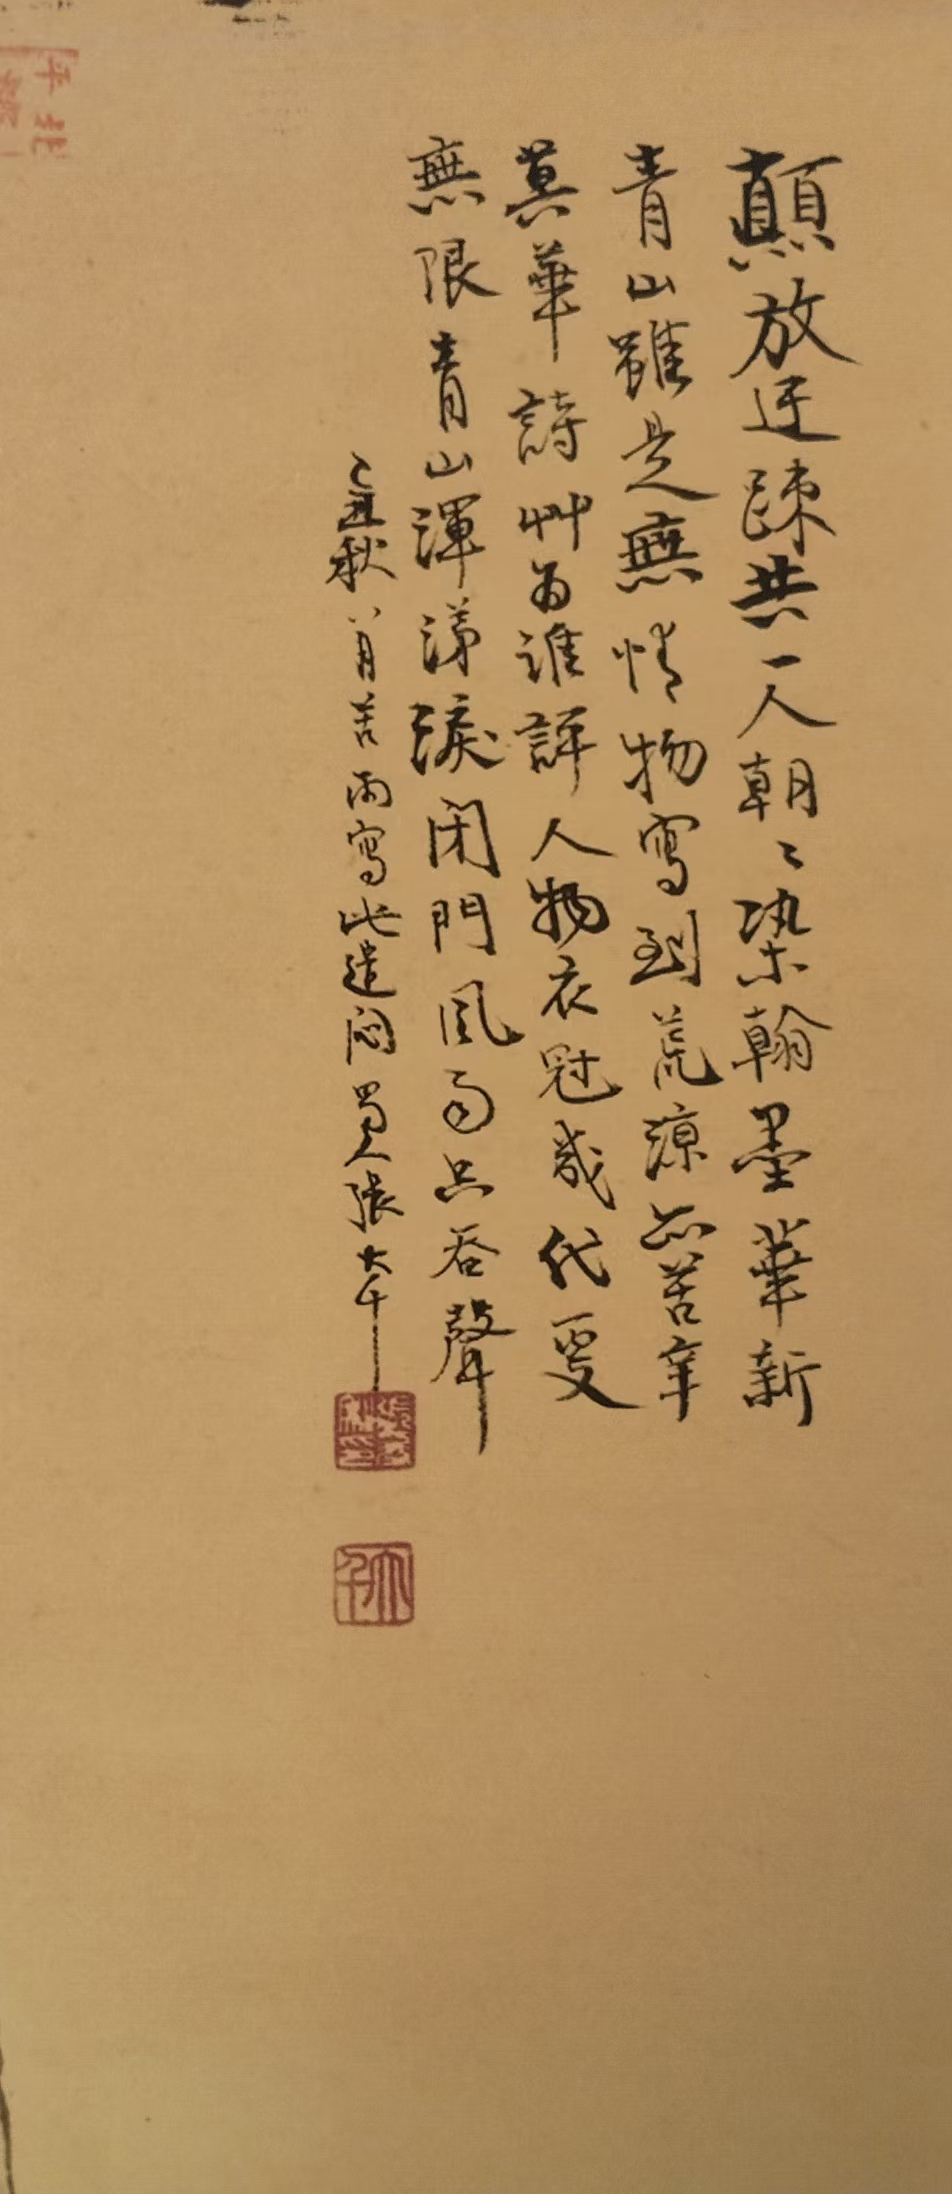 顛放迂疎共一人朝〻染翰墨華新
青山雖是無情物寫到荒涼亦苦辛
萁華詩艸為誰評人物衣冠幾代更
無限青山渾涕淚閉門風雨只吞聲
乙丑秋八月苦雨寫此遣悶蜀人張大千
大千
平北